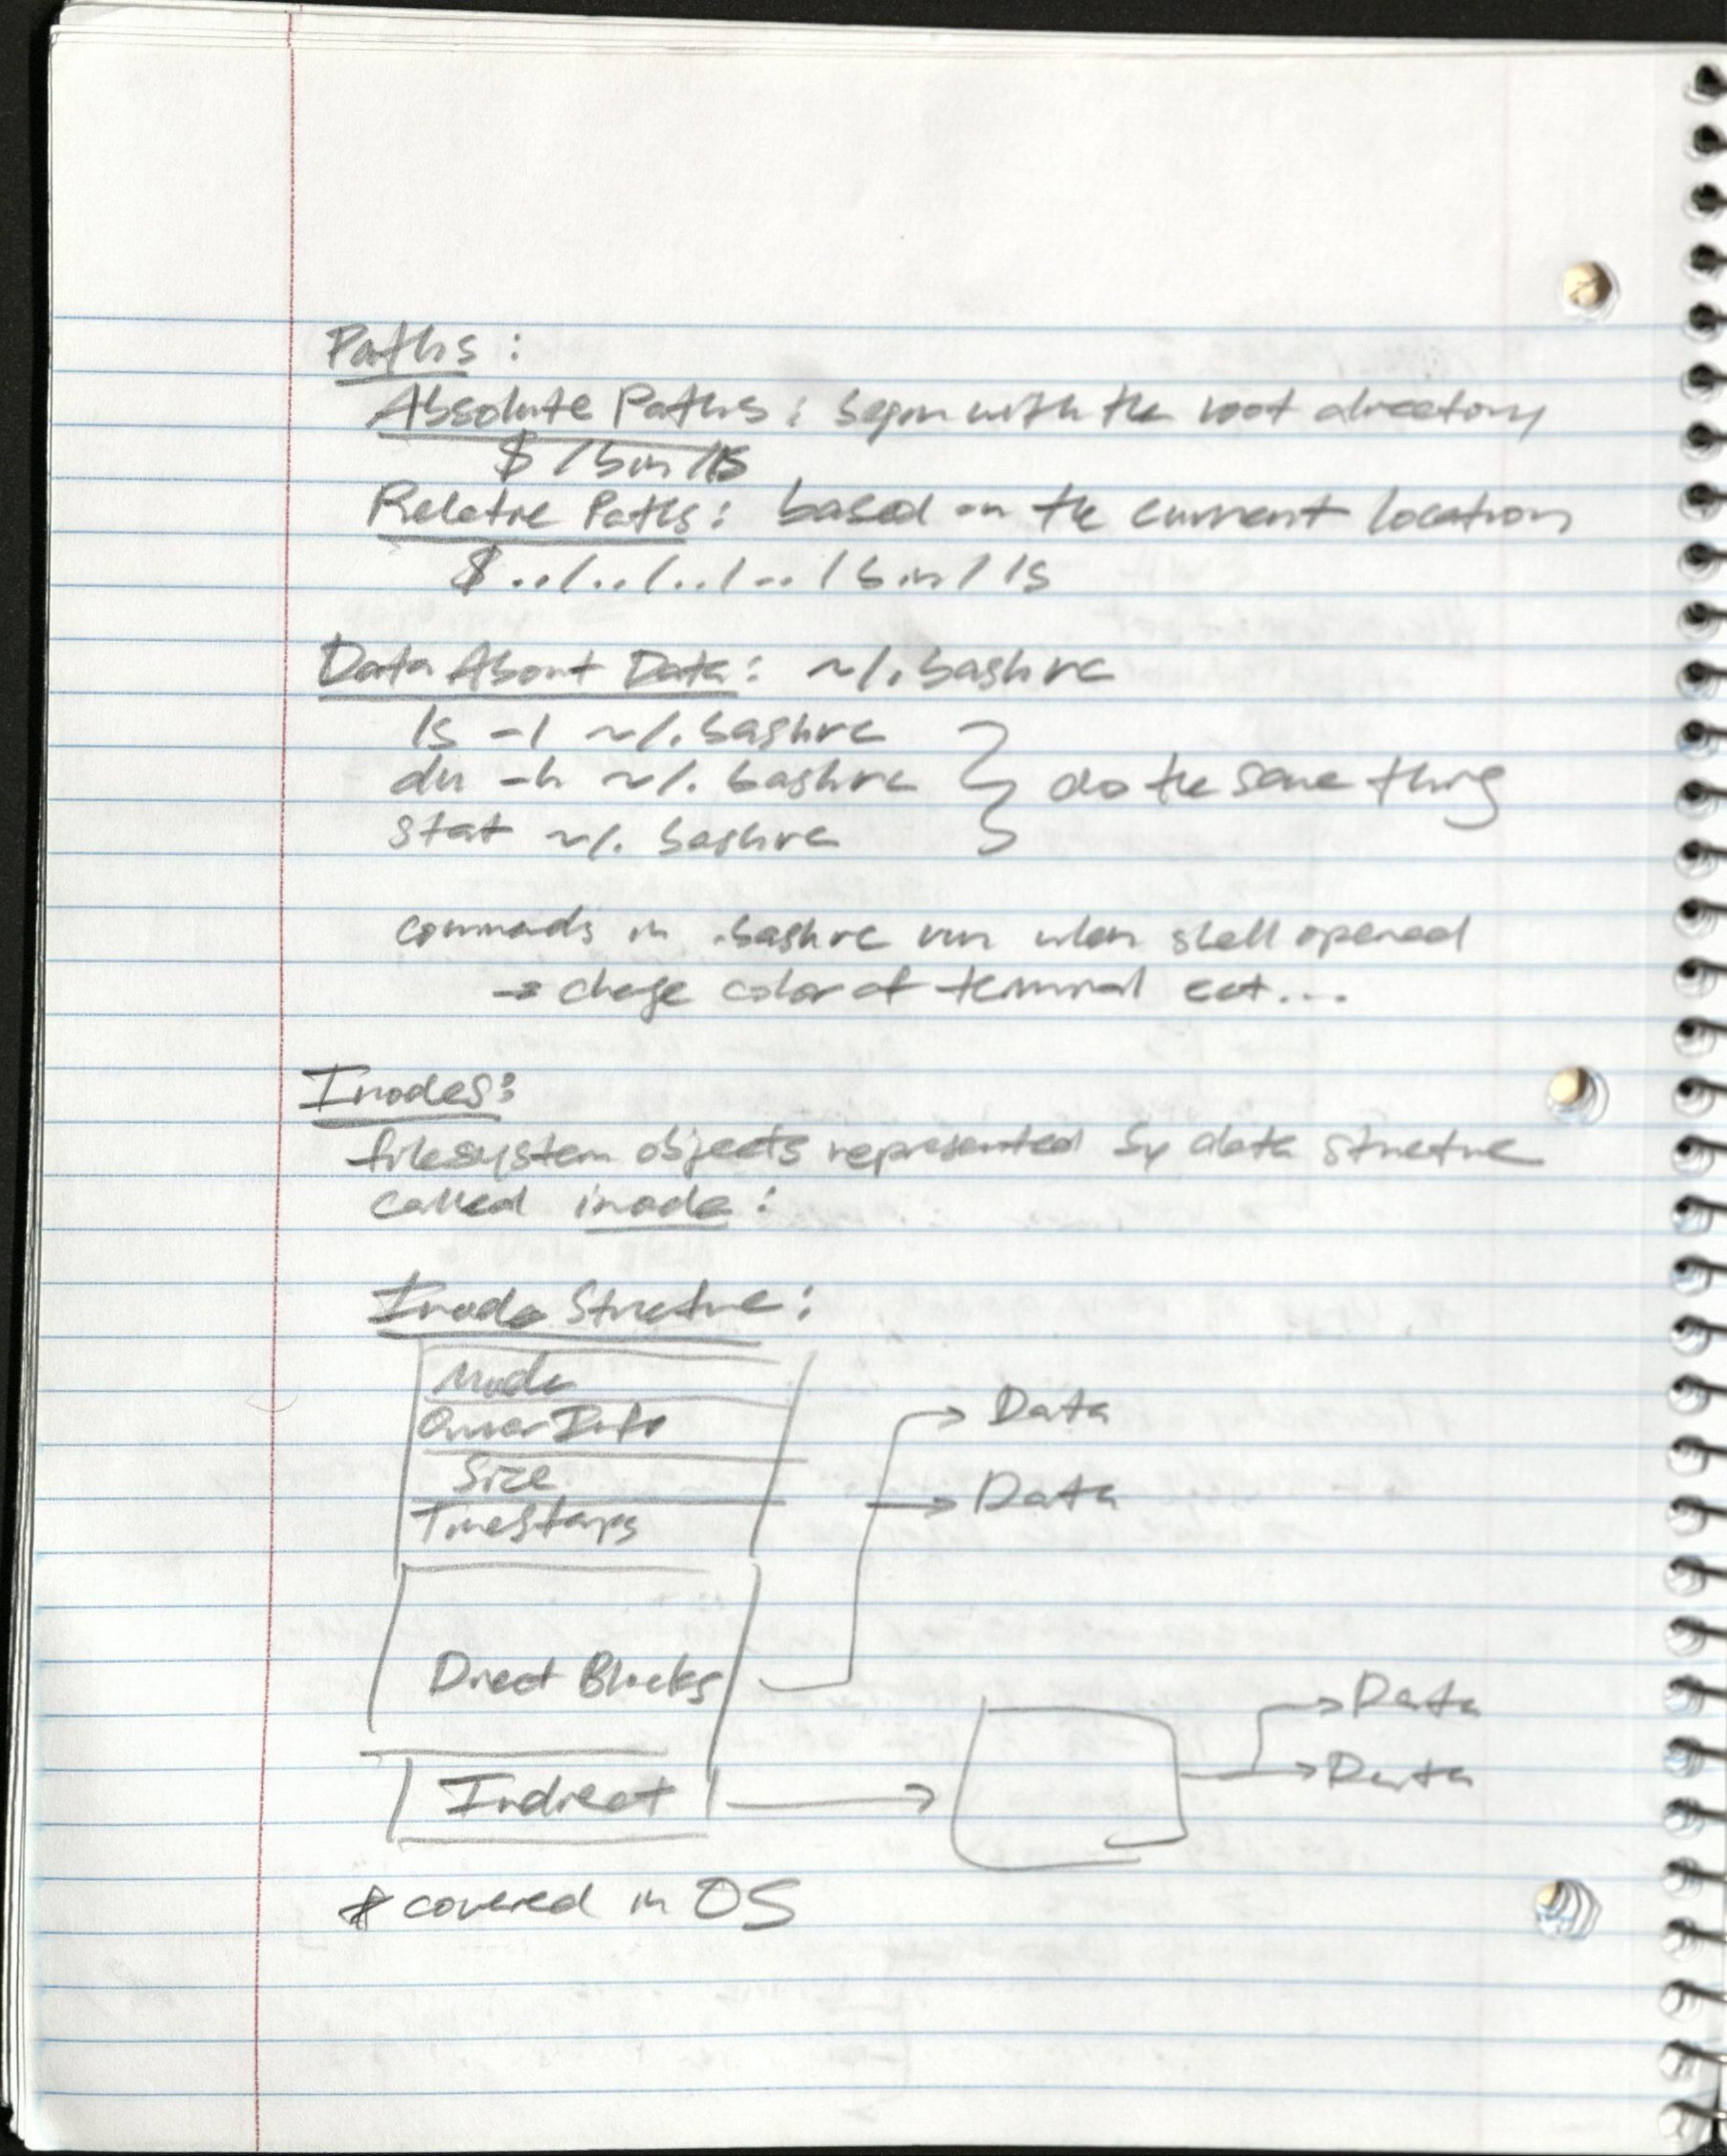 Paths:
Absolute Paths: begin with the root directory
$ /bin/ls
Relative Paths: based on the current location
$ ../../../../bin/ls
Data About Data: ~/.bashrc
ls -l ~/.bashrc
du -h ~/.bashrc } do the same thing
stat ~/.bashrc
commands in .bashrc run when shell opened
→ change color of terminal ect...
Inodes:
filesystem objects represented by data structure
called inode:
Inode Structure:
Mode
Owner Info
Size
Timestamps
Data
Data
Direct Blocks
Indirect
Data
Data
* covered in OS